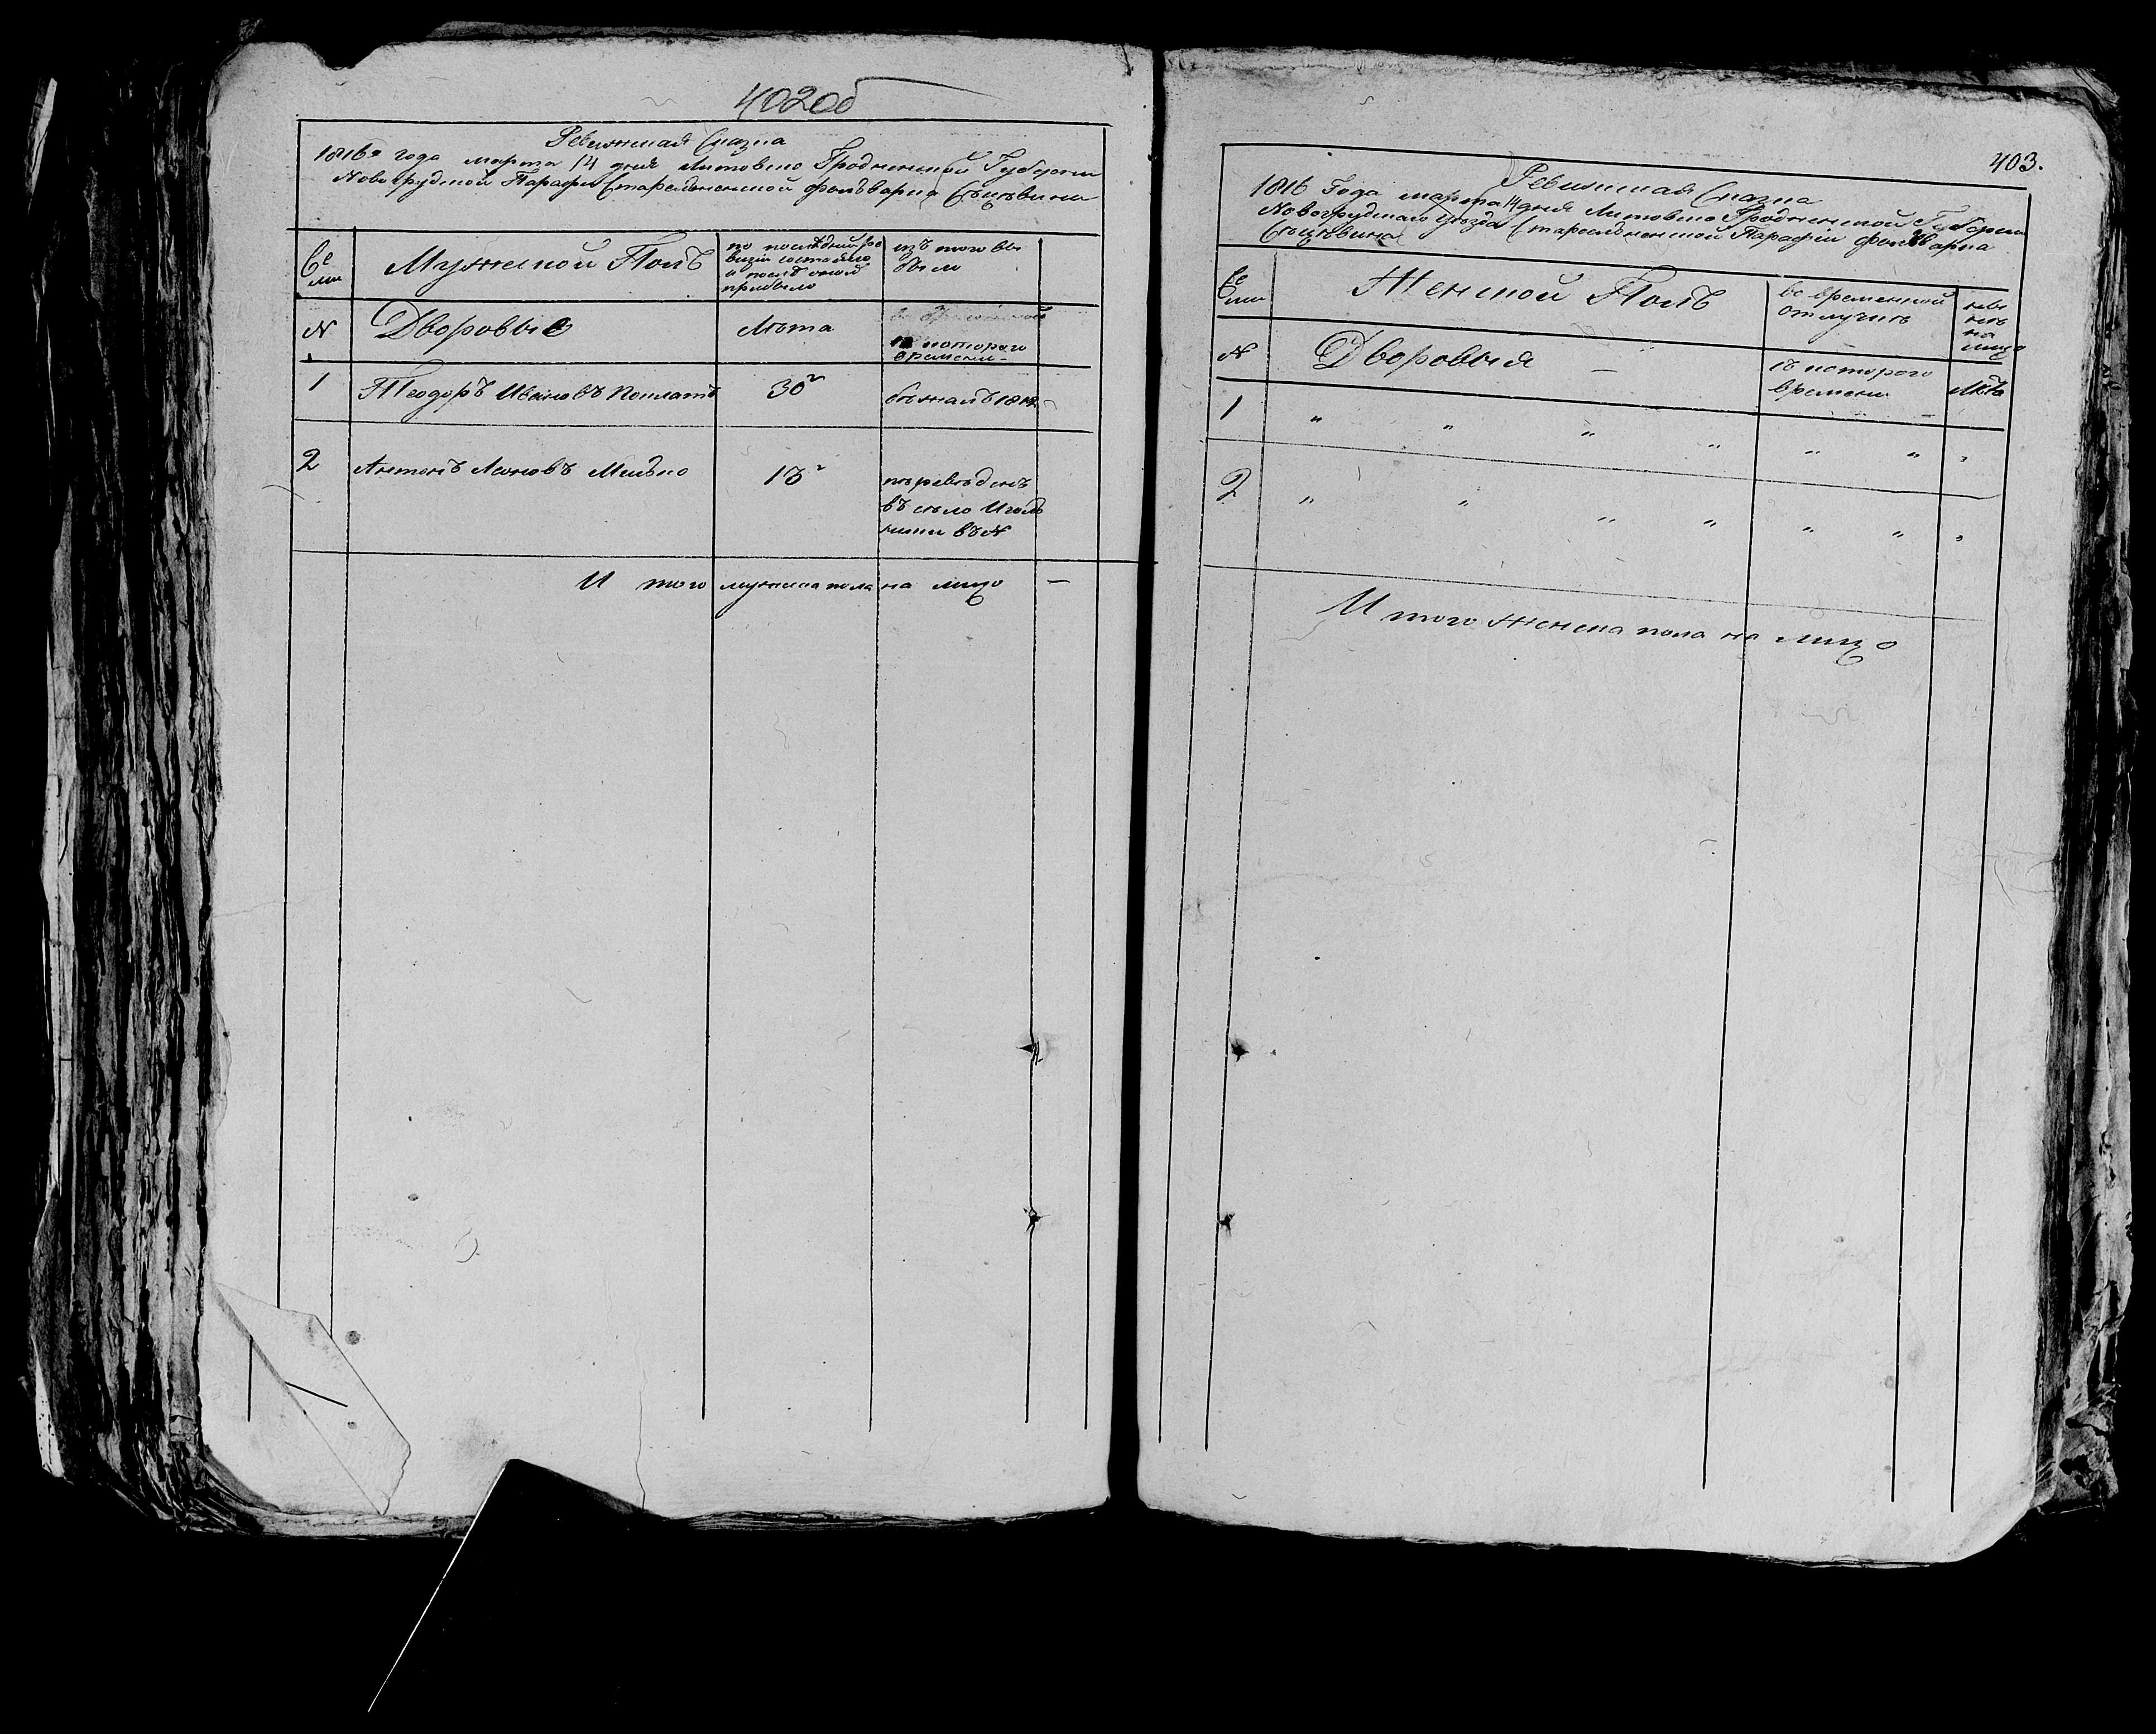 402об
Ревизская Сказка
1816го года марта 14 дня Литовско Гродненской Губернии
Новогрудской Парафии фольварка
Се
ми
Мужеской Полъ
по последней ре
визии состояло
и после оной
прибыло
изъ того вы
было
№
Дворовые
Лѣта
съ котораго
времени
1
Теодоръ Ивановъ
30
бежалъ 1812
2
Антонъ
13
переведенъ
въ село
въ №
И того мужеска пола на лицо —
403.
Ревизская Сказка
1816 Года марта 14 дня Литовско Гродненской Губернии
Новогрудскаго уезда Парафии фольварка
Се
ми
Женской Полъ
во временной
отлучке
ныне
на
лицо
№
Дворовыя —
съ котораго
времени
Лѣта
1 " " " " " " "
2 " " " " " " "
И того женска пола на лицо